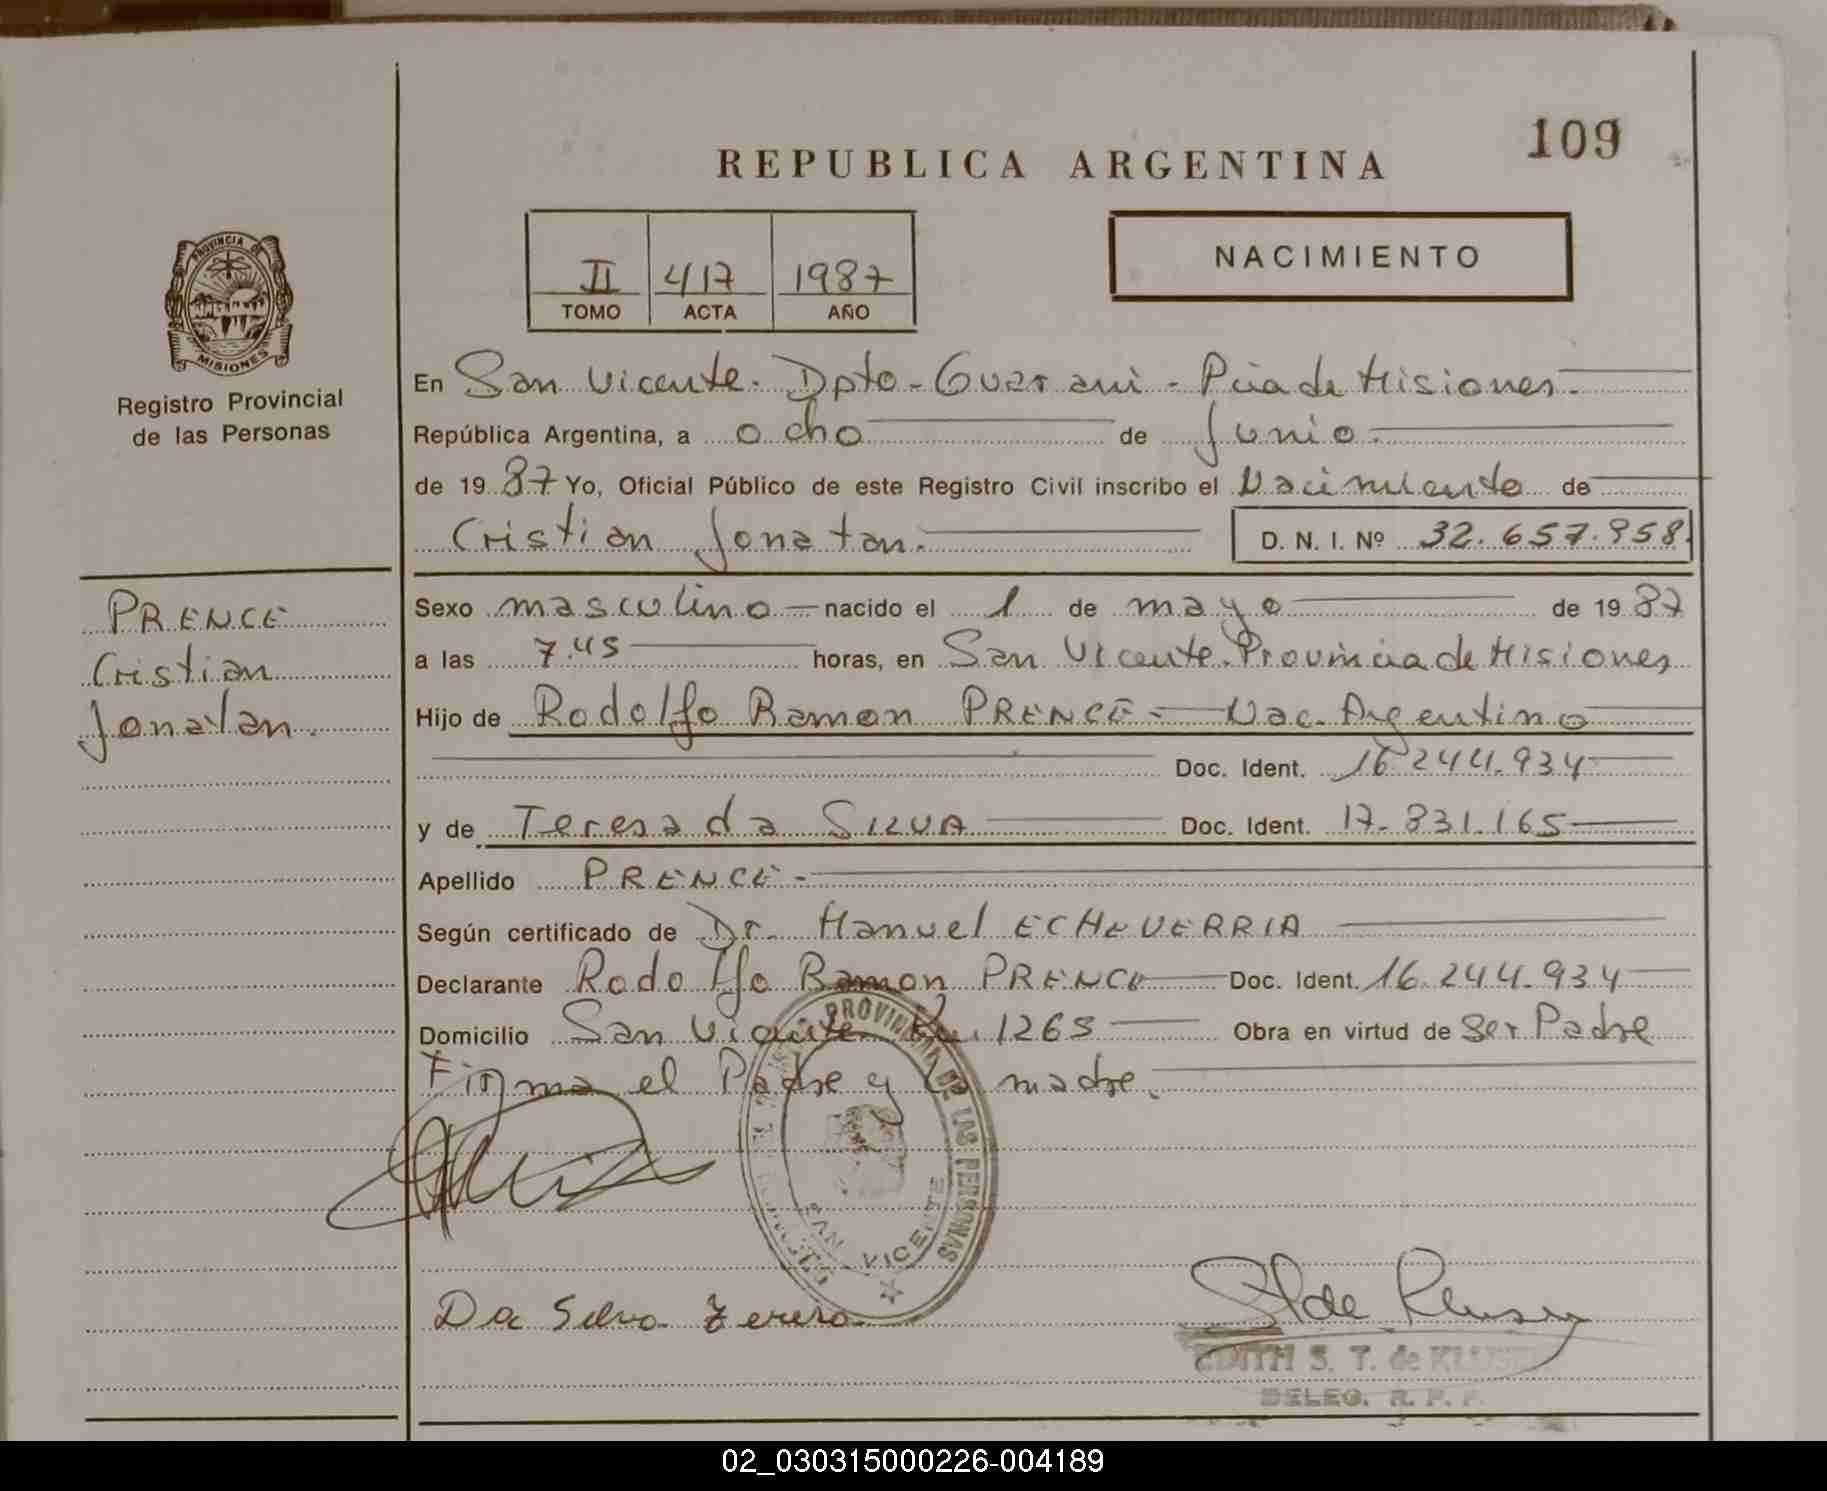 109
REPUBLICA ARGENTINA
PROVINCIA DE
MISIONES
Registro Provincial
de las Personas
II 417 1987
TOMO ACTA AÑO
NACIMIENTO
En San Vicente. Dpto - Guarani - Pcia de Misiones.
República Argentina, a ocho de Junio.
de 19 87 Yo, Oficial Público de este Registro Civil inscribo el Nacimiento de
Cristian Jonatan. D. N. I. Nº 32.657.958.
PRENCE
Cristian
Jonatan.
Sexo masculino nacido el 1 de mayo de 19 87
a las 7.45 horas, en San Vicente. Provincia de Misiones
Hijo de Rodolfo Ramon PRENCE - Nac. Argentino
Doc. Ident. 16.244.934
y de Teresa da SILVA Doc. Ident. 17.831.165
Apellido PRENCE -
Según certificado de Dr. Manuel ECHEVERRIA
Declarante Rodolfo Ramon PRENCE Doc. Ident. 16.244.934
Domicilio San Vicente Km. 1265 Obra en virtud de ser Padre
Firma el Padre y la madre.
PROVINCIAL DE LAS PERSONAS
SAN VICENTE
Da Silva
EDITH S. T. de KLUSE
DELEG. R. P. P.
02_030315000226-004189